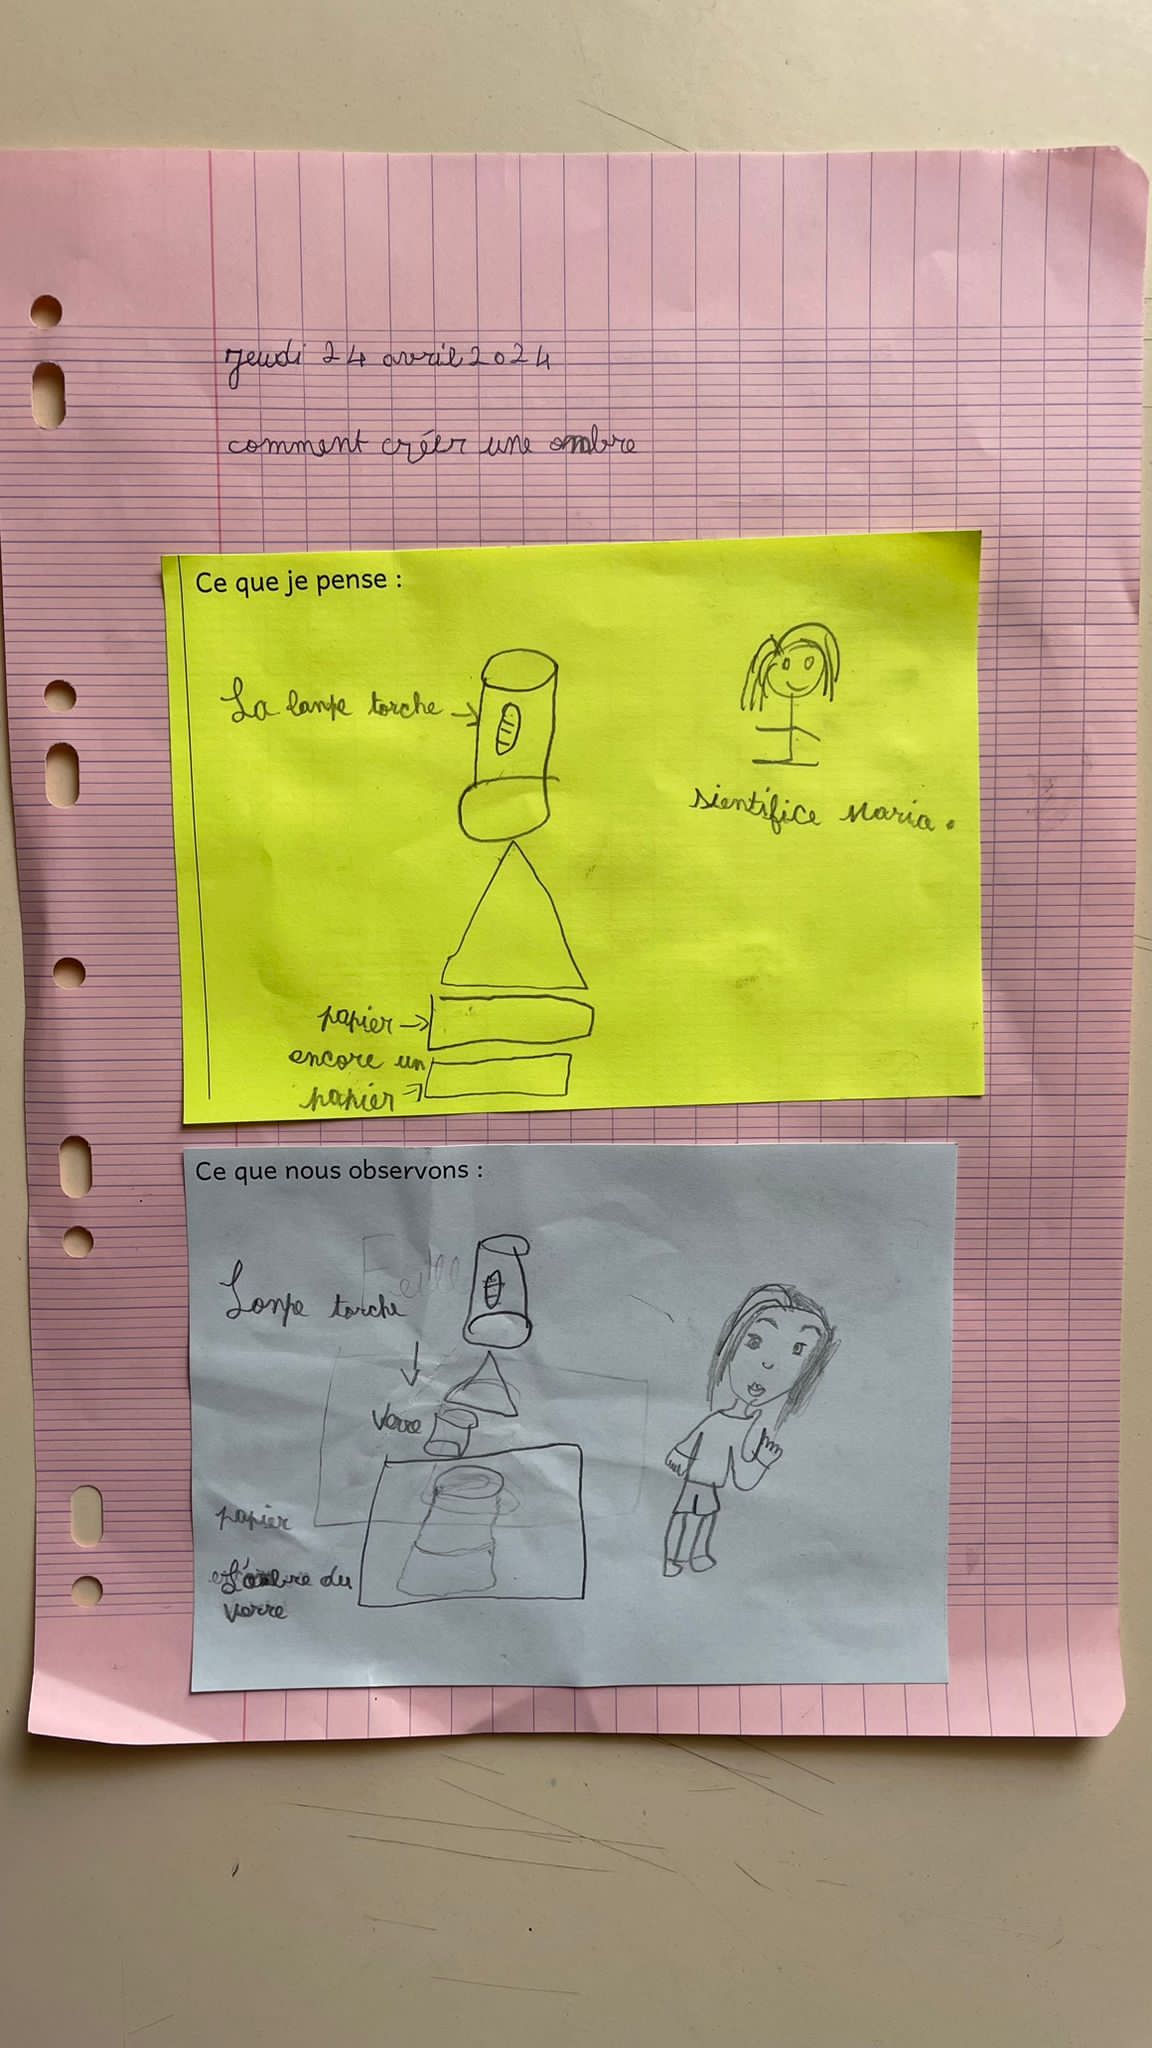 jeudi 24 avril 2024
comment créer une ombre
Ce que je pense :
La lanpe torche
sientifice Maria.
papier
encore un
papier
Ce que nous observons :
Lanpe torche
Verre
papier
L'ombre du
verre